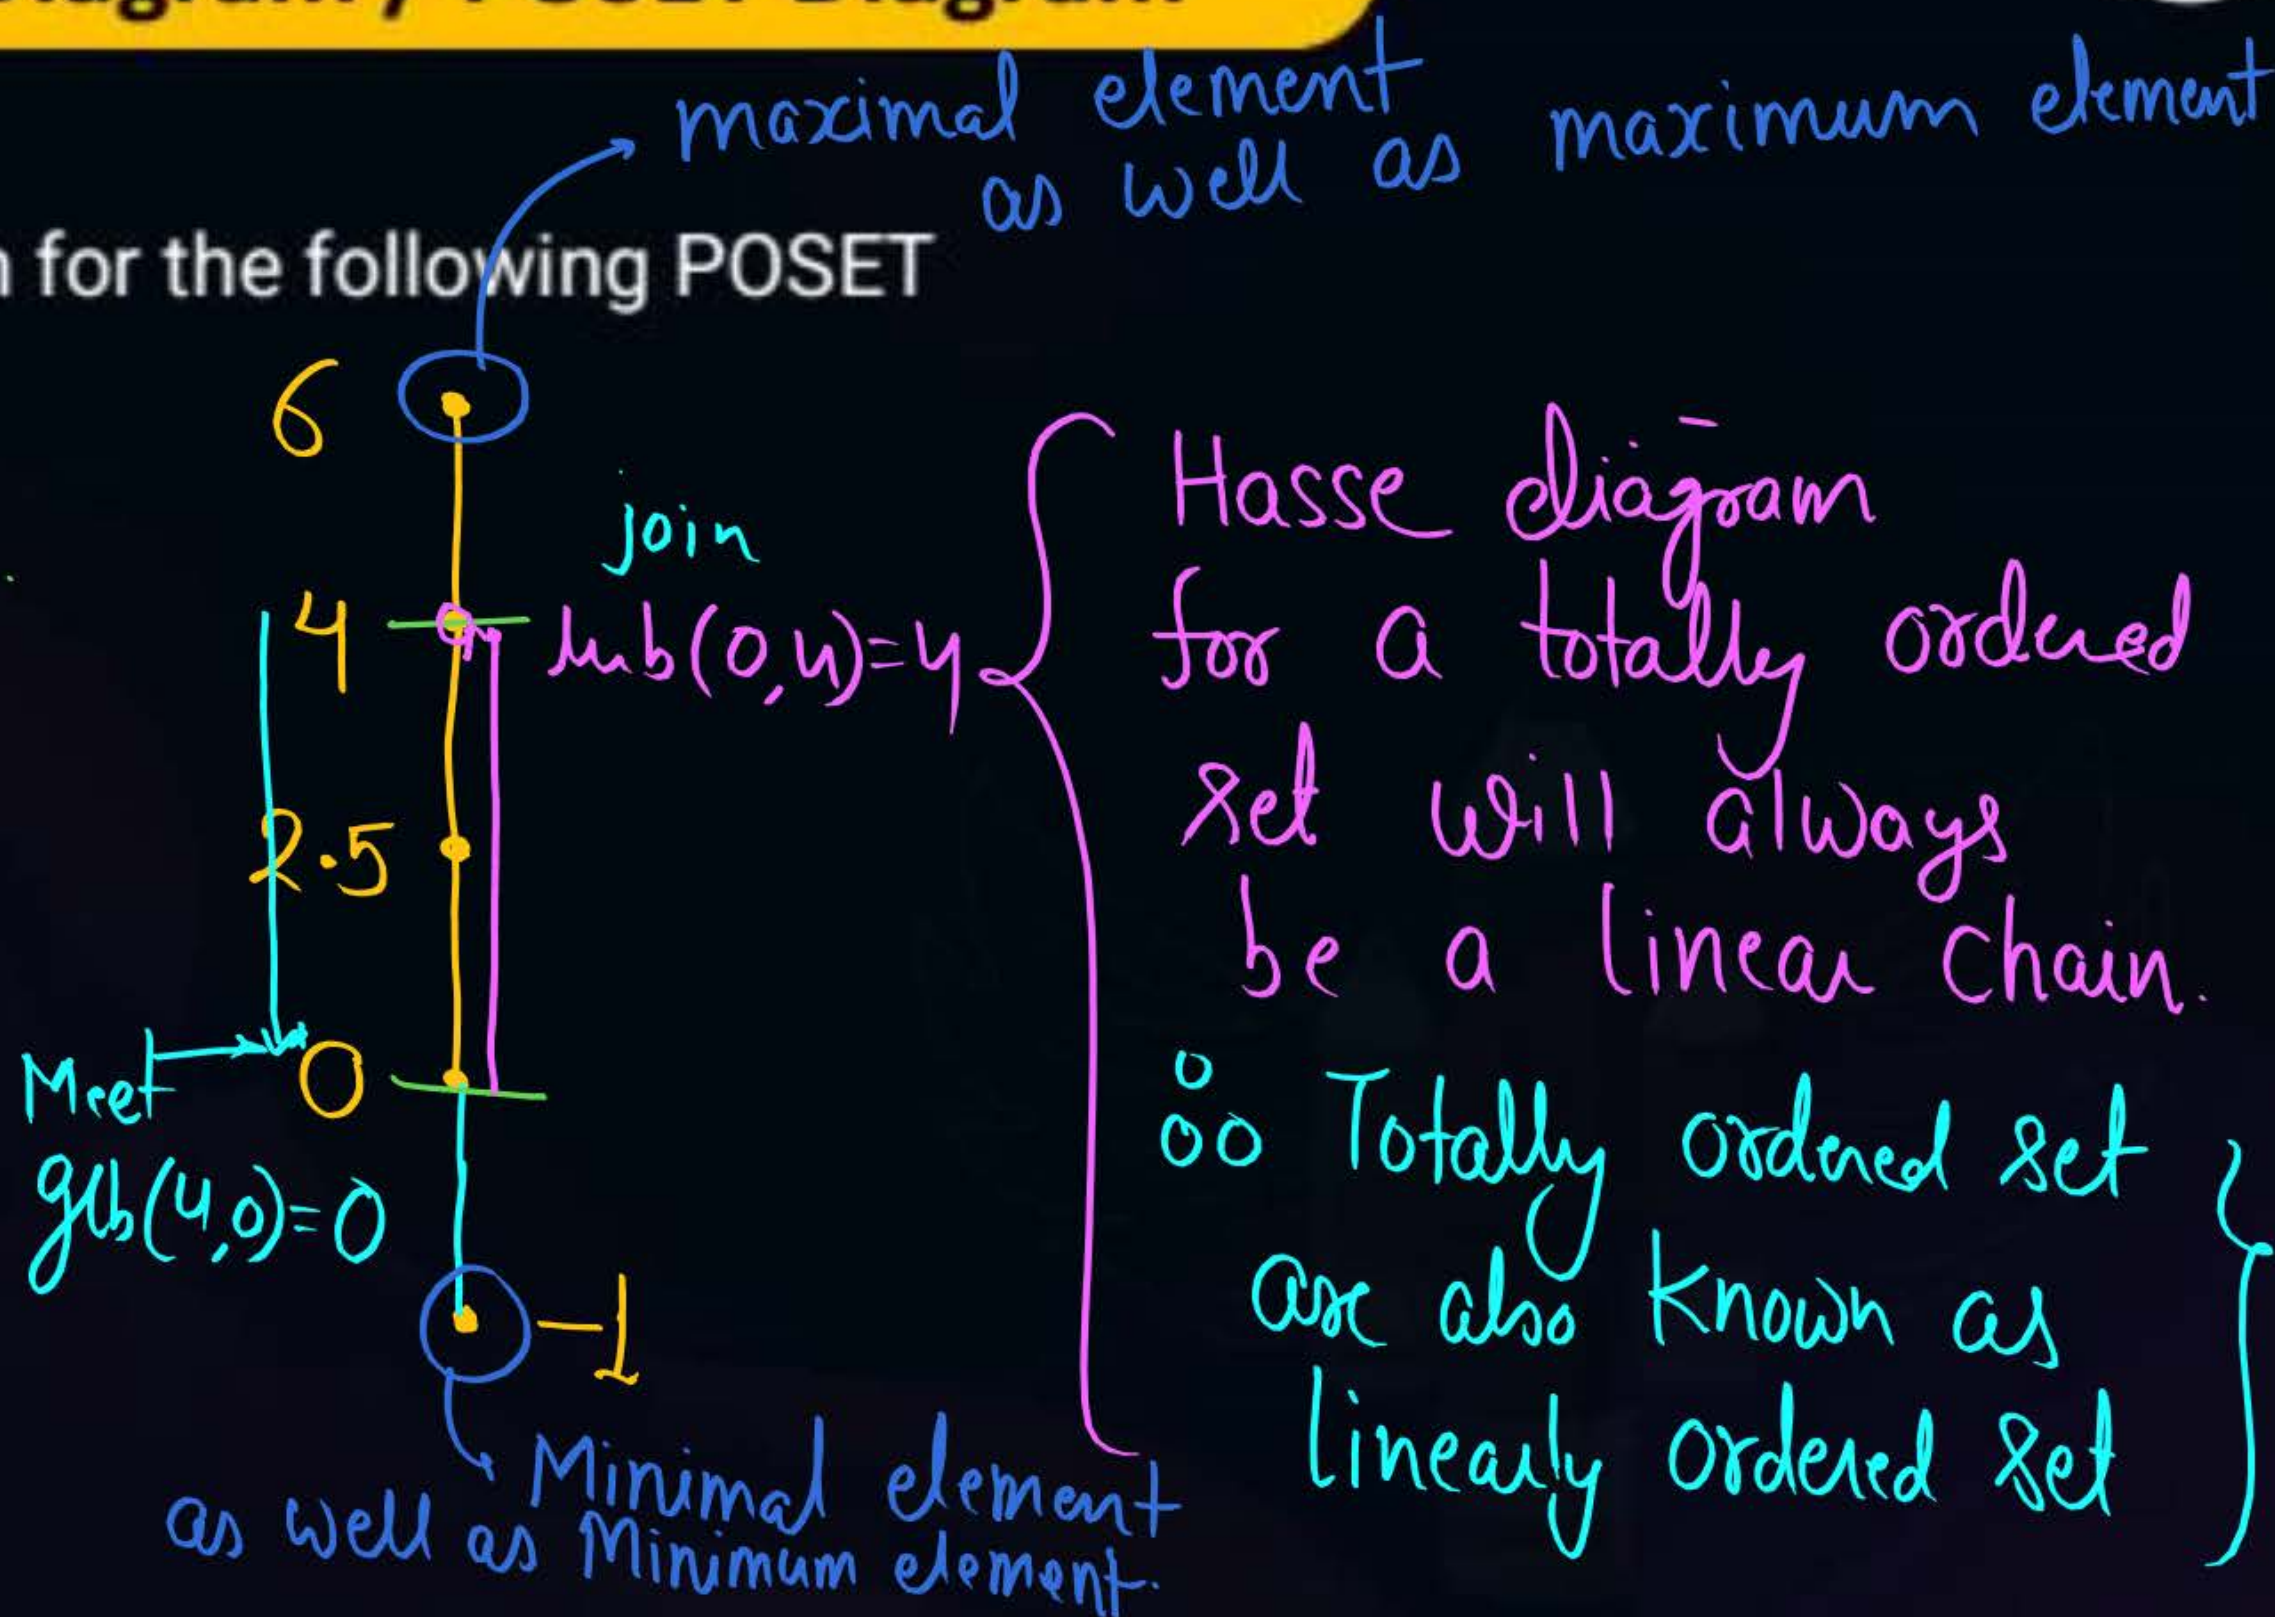 Diagram / POSET Diagram
maximal element
as well as maximum element
for the following POSET
6
join
4
lub(0,4)=4
2.5
Meet
0
glb(4,0)=0
-1
Minimal element
as well as Minimum element.
Hasse diagram
for a totally ordered
set will always
be a linear chain.
Totally ordered set
are also known as
linearly ordered set